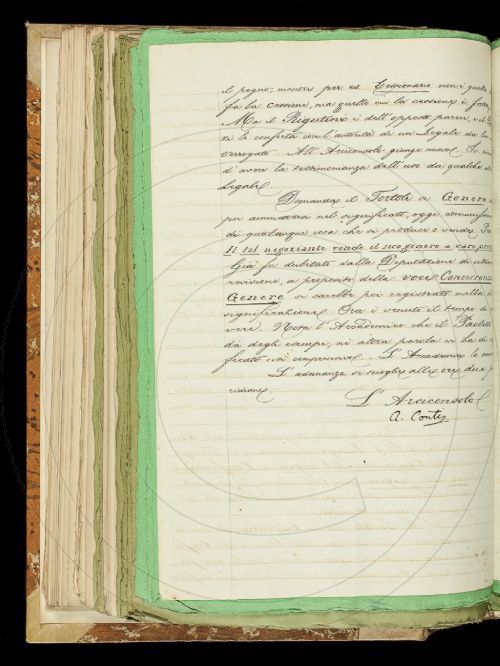 il pegno; mentre per es. Cessionario non è quello
fa la cessione, ma quello cui la cessione è fatta
Ma il Rigutini è dell'opposto parere, e
si conforta con l'autorità di un Legale da lui
terrogato. All'Arciconsolo giunge nuovo. Si
di avere la testimonianza dell'uso da qualche
Legale.
Domanda il Tortoli se Genere
per ammettersi nel significato, oggi comune
di qualunque cosa che si produce e vende.
Il tal negoziante vende il suo genere a caro
Già fu dubitato dalla Deputazione di ultima
revisione, a proposito della voce Concorrenza
Genere si sarebbe poi registrato nella
significazione. Ora è venuto il tempo di
vere. Nota l'Accademico che il Paoletti
dà degli esempi, nè altra parola ci ha di
ficato così comprensivo. L'Accademia lo
L'adunanza si scioglie alle ore due p
ridiane.
L'Arciconsolo
A. Conti